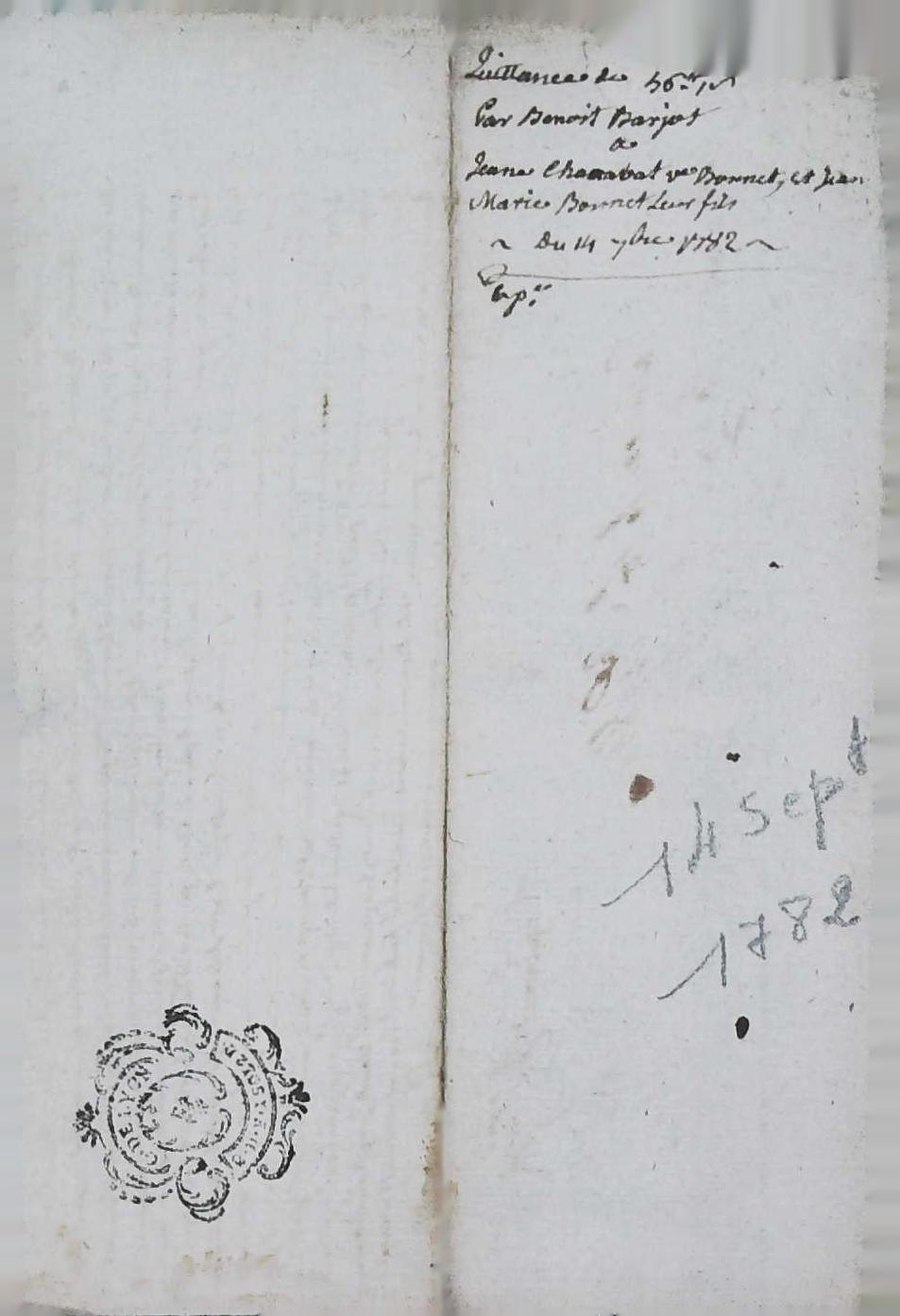 Quittance de 56ᵗᵗ 1ˢ
Par Benoit Barjot
a
Jeane Chanabat vᵉ Bonnet, et Jean
Marie Bonnet leur fils
~ du 14 7bre 1782 ~
Expⁿ
14 sept
1782
DE LYON